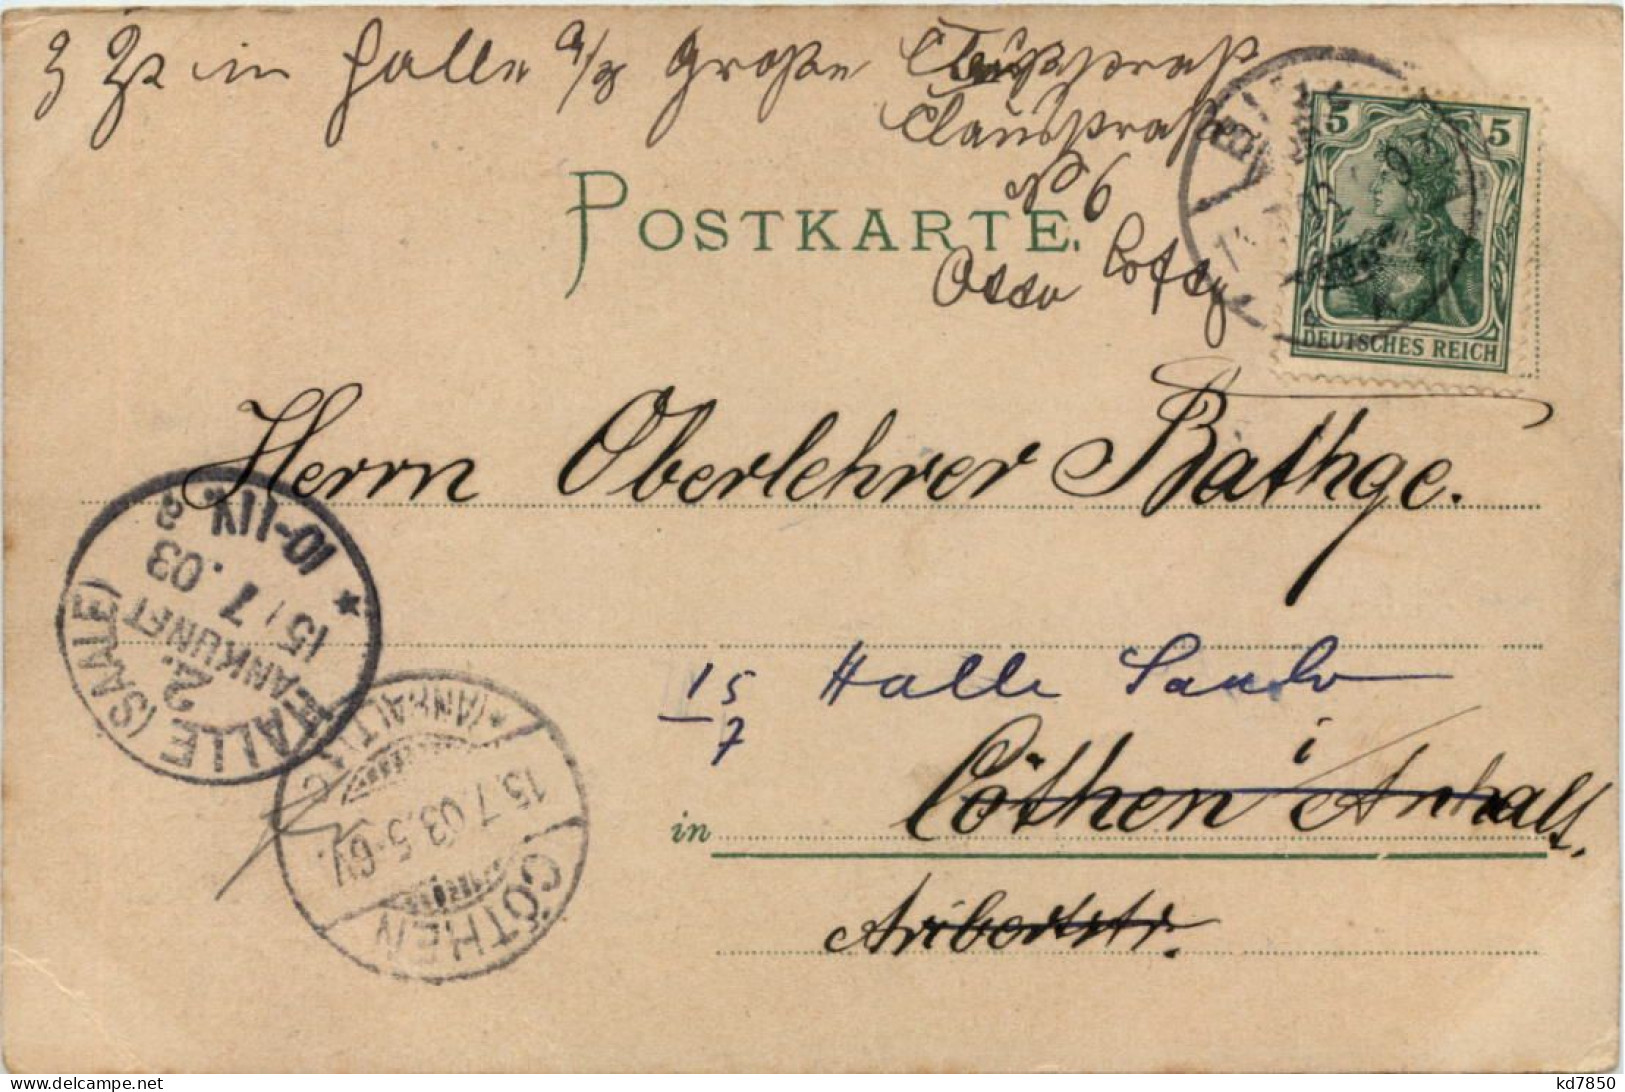 z Zt in Halle a/S Große
Clausstraß
No 6
POSTKARTE.
Otto
5 5
DEUTSCHES REICH
Herrn Oberlehrer Bathge.
HALLE (SAALE)
2.
ANKUNFT
15/7.03
10-11V.
*
15 Halle Saale
7
in Cöthen i Anhalt,
Aribertstr.
CÖTHEN
(ANHALT)
15.7.03.5-6V.
kd7850